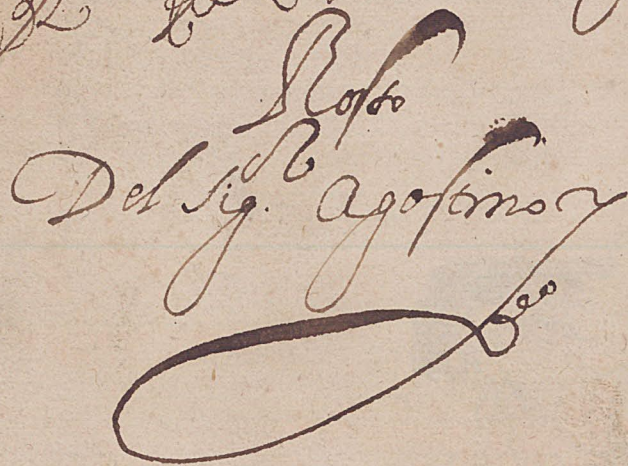 Rosto
Del Sig.r Agostino